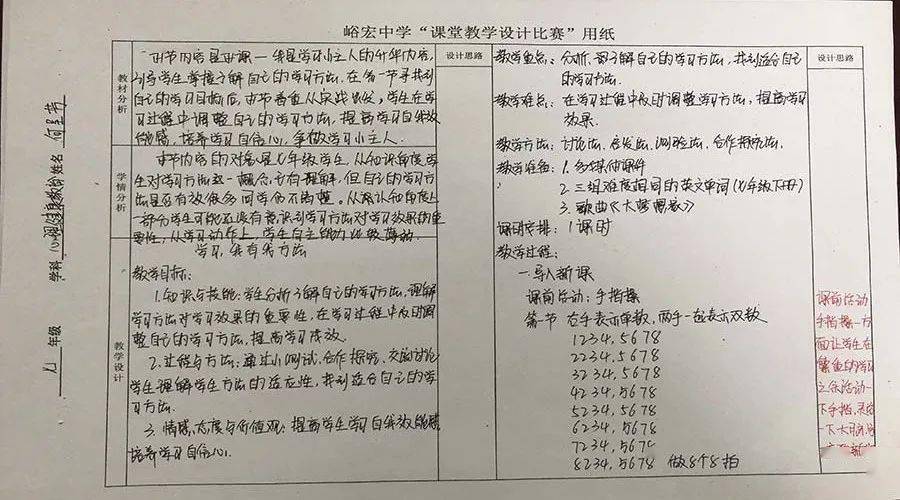 峪宏中学“课堂教学设计比赛”用纸
学科 心理健康教育 姓名
七 年级
教材分析
设计思路
本节内容是本课一块是学习小主人的升华内容,
引导学生掌握了解自己的学习方法. 在第一节寻找到
自己的学习目标后, 本节着重从实战出发, 学生在学
习过程中调整自己的学习方法. 提高学习自我效
能感, 培养学习自信心, 争做学习小主人.
学情分析
本节内容的对象是七年级学生. 从知识角度学
生对学习方法这一概念, 已有理解, 但自己的学习方
法是否有效很多同学仍不清楚. 从认知角度上
一部分学生可能还没有意识到学习方法对学习效果的重
要性, 从学习动作上, 学生自主能力比较薄弱.
教学设计
学习, 我有我方法
教学目标:
1. 知识与技能: 学生分析了解自己的学习方法, 理解
学习方法对学习效果的重要性, 在学习过程中及时调
整自己的学习方法, 提高学习成效.
2. 过程与方法: 通过小测试, 合作探究, 交流讨论
学生理解学生方法的适应性, 找到适合自己的学
习方法.
3. 情感, 态度与价值观: 提高学生学习自我效能感
培养学习自信心.
设计思路
教学重点: 分析, 了解自己的学习方法, 找到适合自己
的学习方法.
教学难点: 在学习过程中及时调整学习方法, 提高学习
效果.
教学方法: 讨论法. 启发法. 测验法. 合作探究法.
教学准备: 1. 多媒体课件
2. 三组难度相同的英文单词(七年级下册)
3. 歌曲《大梦想家》
课时安排: 1课时
教学过程:
一. 导入新课
课前活动: 手指操
第一节 右手表示单数, 两手一起表示双数
1234, 5678
2234, 5678
3234, 5678
4234, 5678
5234, 5678
6234, 5678
7234, 567
8234, 5678 做8个8拍
课前活动
手指操一方
面让学生在
繁重的学习
之余活动一
下手指, 灵活
一下大脑,